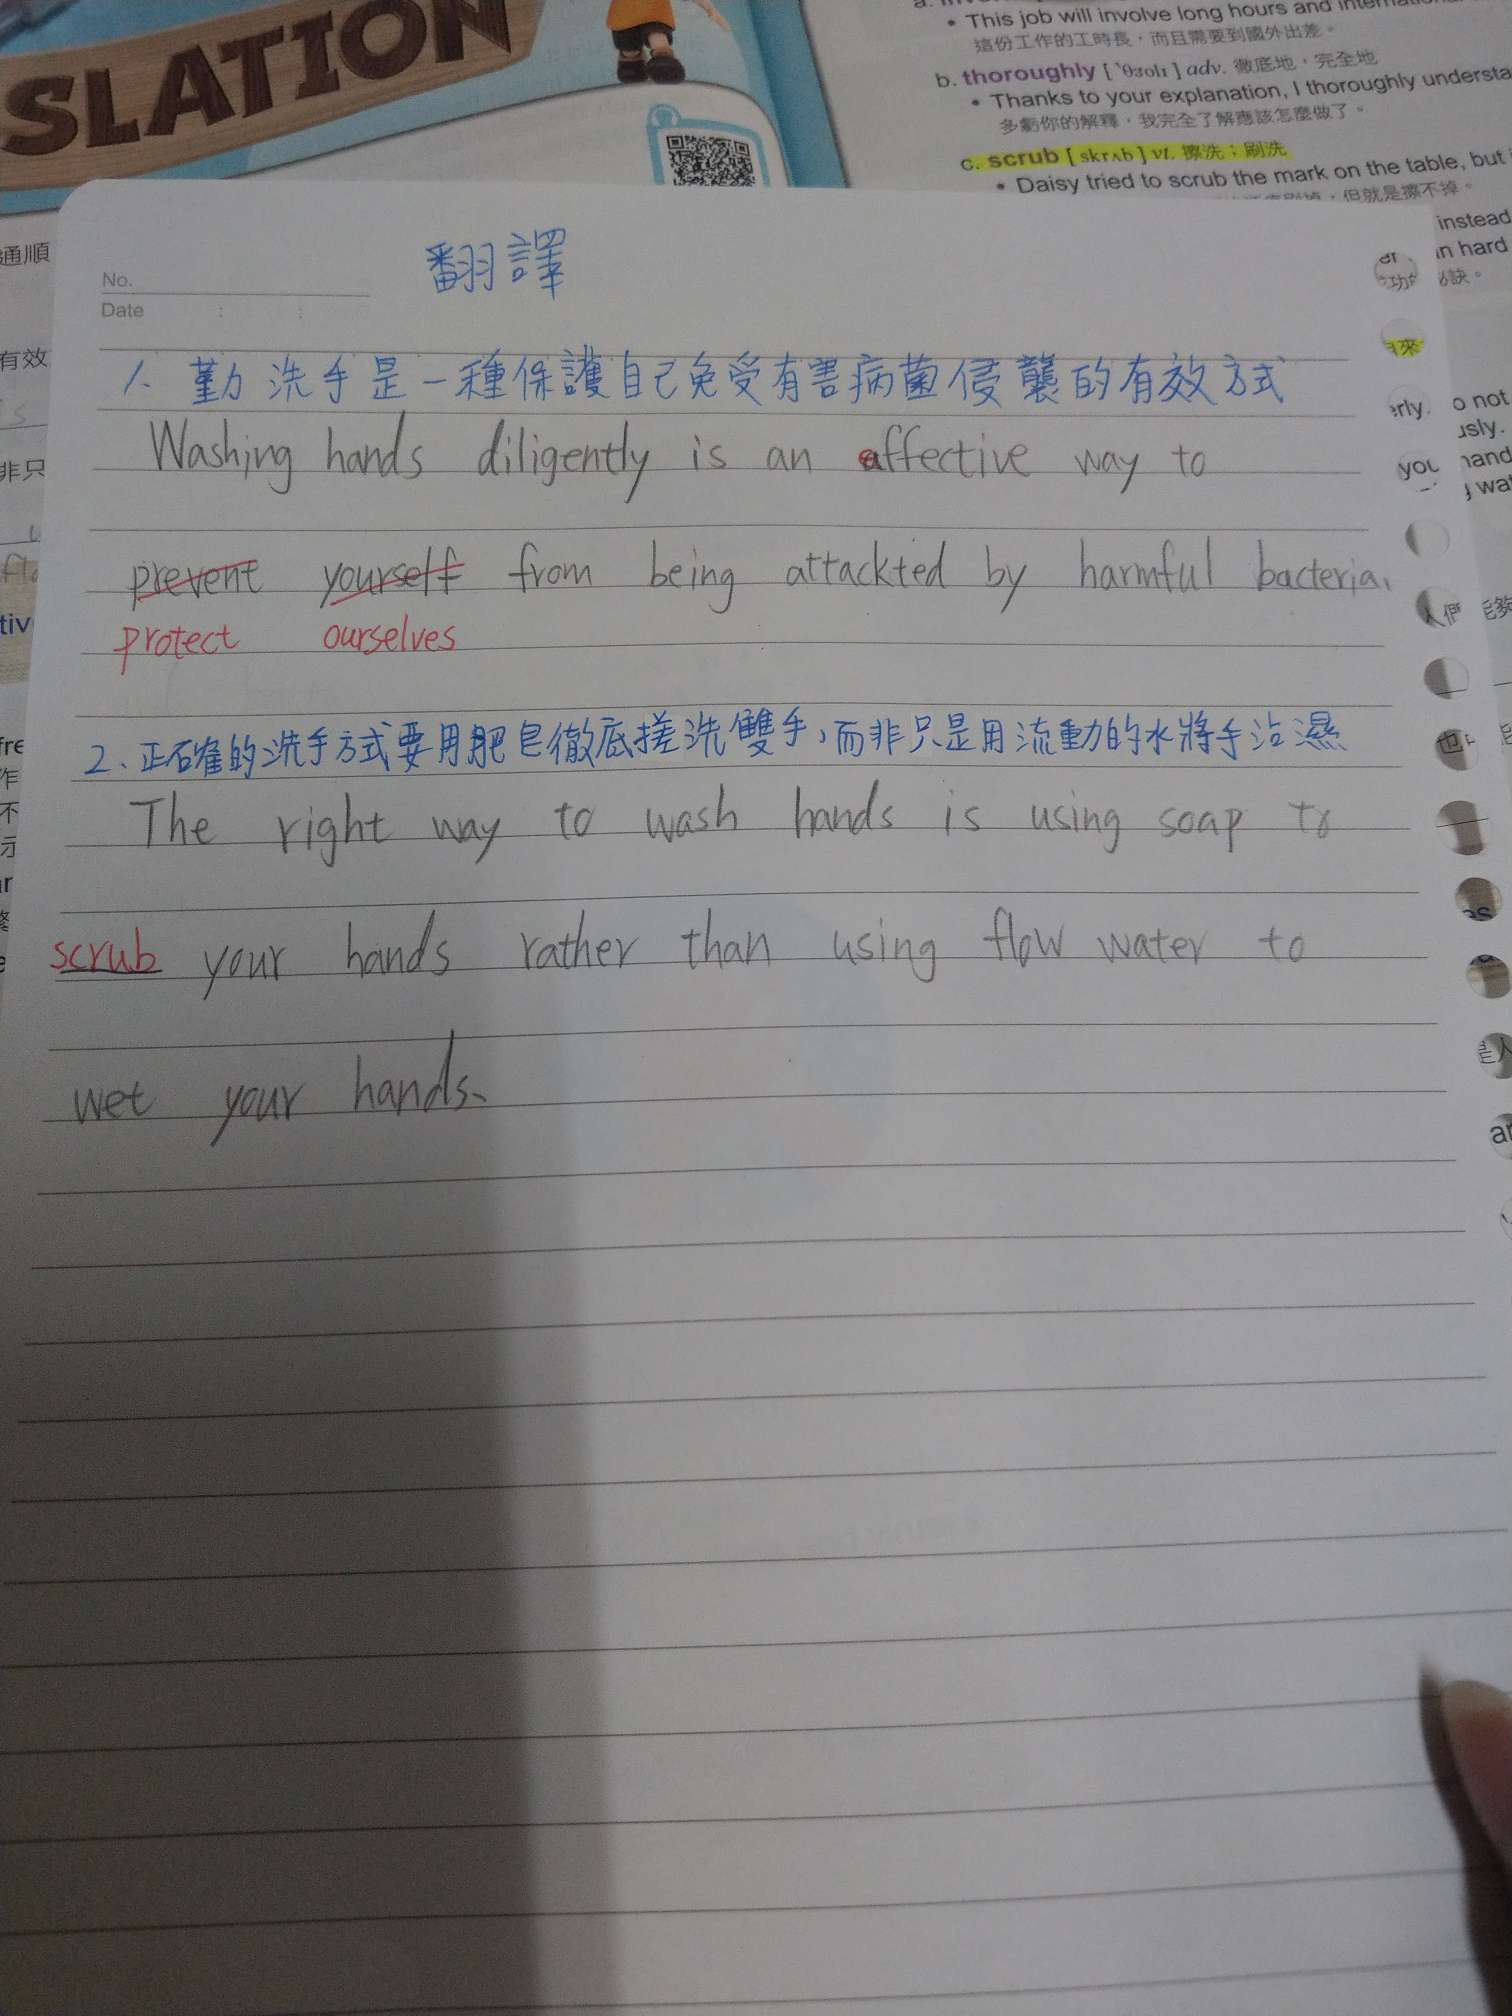 SLATION
• This job will involve long hours and
這份工作的工時長，而且需要到國外出差。
b. thoroughly [ˋθɝolɪ] adv. 徹底地，完全地
• Thanks to your explanation, I thoroughly
多虧你的解釋，我完全了解應該怎麼做了。
c. scrub [skrʌb] vt. 擦洗；刷洗
• Daisy tried to scrub the mark on the table, but
但就是擦不掉。
instead
hard
通順
有效
非只
翻譯
No.
Date : :
1、勤洗手是一種保護自己免受有害病菌侵襲的有效方式
Washing hands diligently is an affective way to
prevent yourself from being attackted by harmful bacteria.
protect ourselves
2、正確的洗手方式要用肥皂徹底搓洗雙手，而非只是用流動的水將手沾濕
The right way to wash hands is using soap to
scrub your hands rather than using flow water to
wet your hands.